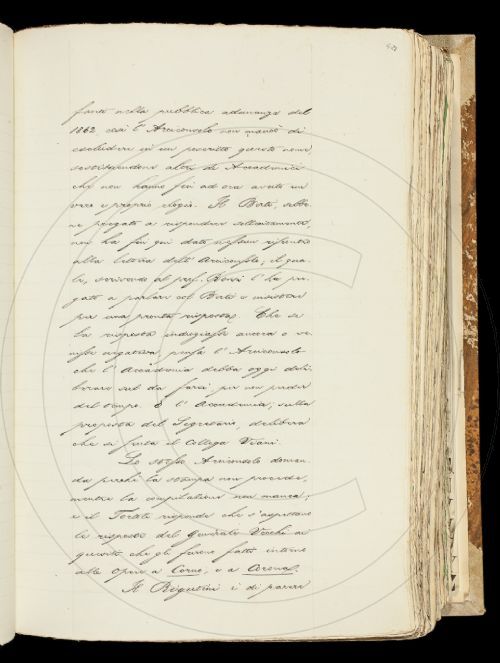 fante nella pubblica adunanza del
1862 così l'Arciconsolo non mancò di
escludere in un poscritto questo nome
sostituendone altri di Accademici
che non hanno fin ad ora avuto un
vero e proprio elogio. Il Berti, sebbe-
ne pregato a rispondere sollecitamente,
non ha fin qui dato nessun riscontro
alla lettera dell'Arciconsolo; il qua-
le, scrivendo al prof. Bonsi l'ha pre-
gato a parlare col Berti e insistere
per una pronta risposta. Che se
la risposta indugiasse ancora o ve-
nisse negativa, pensa l'Arciconsolo
che l'Accademia debba oggi deli-
berare sul da farsi, per non perder
del tempo. E l'Accademia, sulla
proposta del Segretario, delibera
che si preghi il Collega Viani.
Lo stesso Arciconsolo doman-
da perchè la stampa non proceda,
mentre la compilazione non manca;
e il Tortoli risponde che s'aspettano
le risposte del Generale Vecchi ai
quesiti che gli furono fatti intorno
alle Opere a Corno, e a Corona.
Il Rigutini è di parere